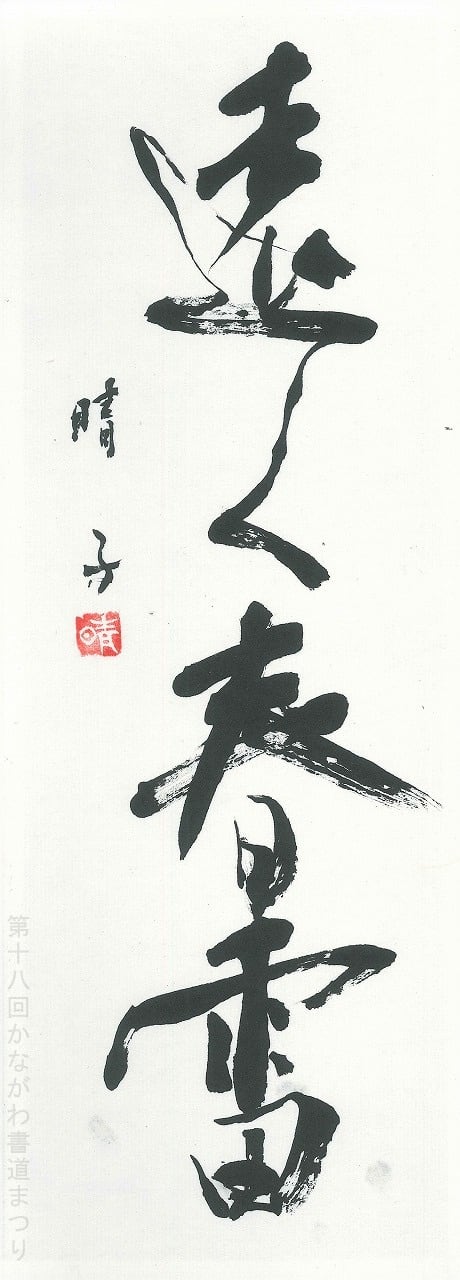 遠く春雷
晴子
晴
第十八回かながわ書道まつり